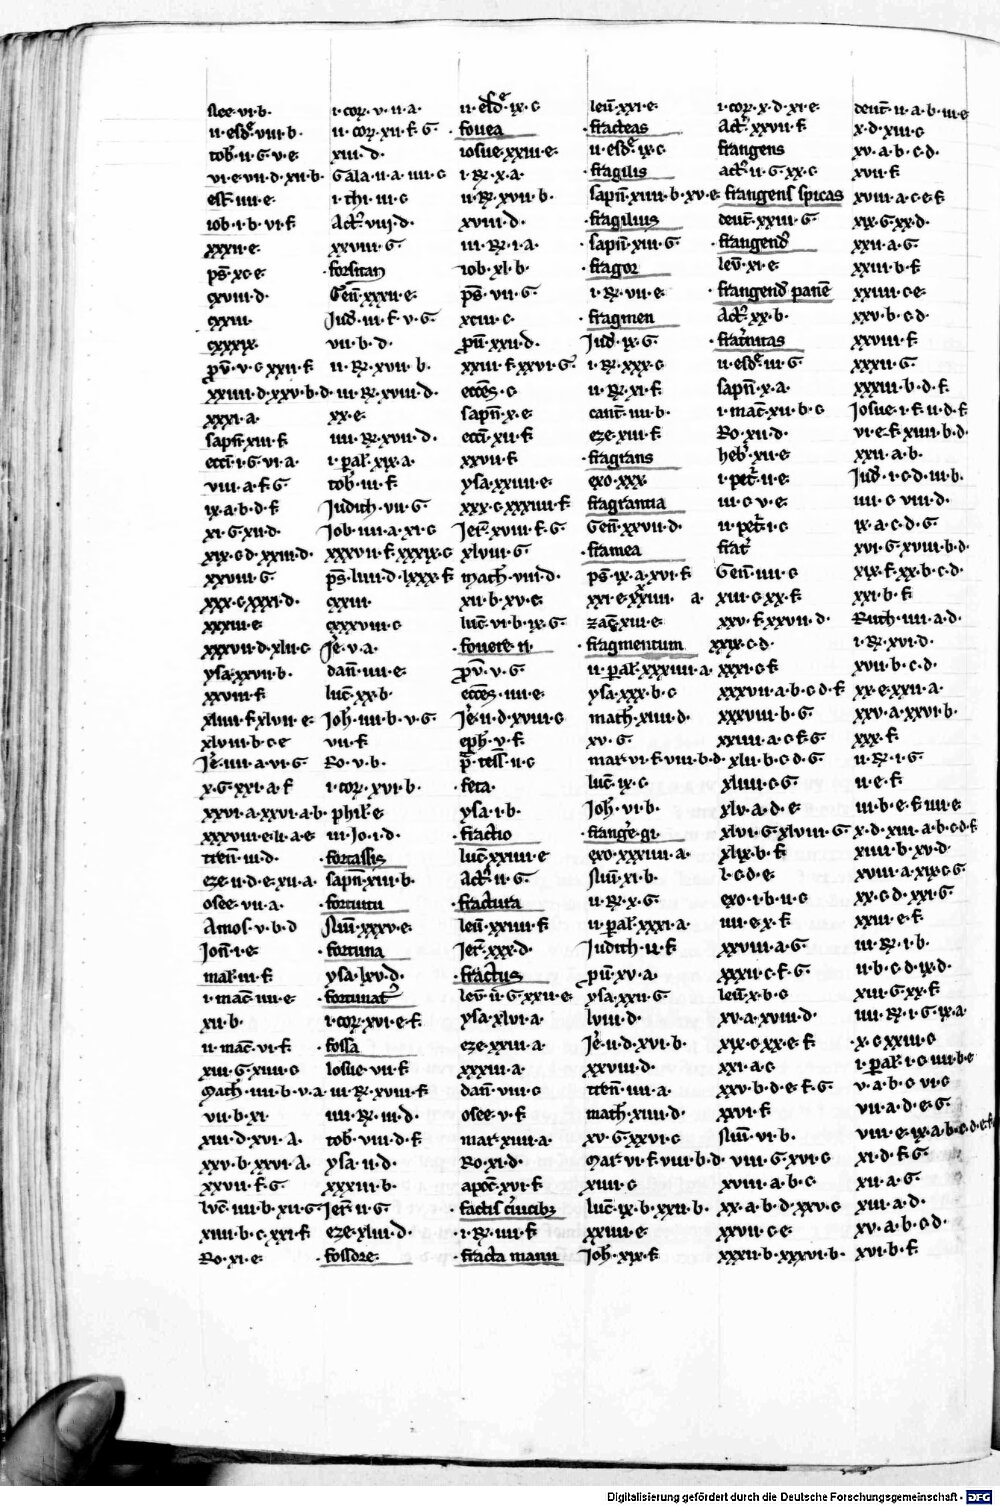 nee·vi·b·
ii·esdr̃·viii·b·
tob̃·ii·G·v·e·
vi·e·vii·d·xii·b·
est̃·iiii·e·
iob·i·b·vi·f·
xxxii·e·
ps̃·xc·e·
cxviii·d·
cxxiii·
cxxxix·
ꝓũ·v·c·xxii·f·
xxiiii·d·xxv·b·d·
xxxi·a·
sapñ·xiii·f·
eccĩ·i·G·vi·a·
viii·a·f·G·
ix·a·b·d·f·
xi·G·xii·d·
xix·c·d·xxiii·d·
xxviii·G·
xxx·c·xxxi·d·
xxxiii·e·
xxxvii·d·xlii·c
ysa·xxvii·b·
xxviii·f·
xliiii·f·xlvii·e·
xlviii·b·c·e·
Je͛·iiii·a·vi·G·
x·G·xxi·a·f
xxvi·a·xxvi·a·b·
xxxviii·e·li·a·e
tren̄·iii·d·
eze·ii·d·e·xii·a·
osee·vii·a·
Amos·v·b·d
Jon̄·i·e·
mal·iii·f·
i·mac̄·iiii·e·
xii·b·
ii·mac̄·vi·f·
xiii·G·xiiii·c
Math·iiii·b·v·a·
vii·b·xi·
xiii·d·xvi·A·
xxv·b·xxvi·A·
xxvii·f·G·
lvc̄·iiii·b·xii·G
xiiii·b·c·xxi·f·
Ro·xi·e·
i·coꝝ·v·ii·a·
ii·coꝝ·xii·f·G·
xiii·d·
Gala·ii·a·iiii·c
i·thi·iii·c
Act̃·viij·d·
xxviii·G
·forsitan
Gen̄·xxxii·e·
Jud̃·iii·f·v·G·
vii·b·d·
ii·R̃·xvii·b·
iii·R̃·xviii·d·
xx·e·
iiii·R̃·xvii·d·
i·pal·xix·a·
tob̃·iii·f·
Judith·vii·G·
Job·iiii·a·xi·c
xxxvii·f·xxxix·c
ps̃·liiii·d·lxxx·f·
cxxiii·
cxxxviii·c
Je͛·v·a·
dan̄·iiii·e·
luc̄·xx·b·
Joh̃·iiii·b·v·G·
vii·f·
Ro·v·b·
i·coꝝ·xvi·b·
phil·e
iii·Jo·i·d·
·fortassis
sapn̄·xiii·b·
·fortuitu
Nūi·xxxv·e·
·fortuna
ysa·lxv·d·
·fortunat᷒
i·coꝝ·xvi·e·f·
·fossa
Iosue·vii·f·
iii·R̃·xviii·f·
iiii·R̃·iii·d·
tob̃·viii·d·f·
ysa·ii·d·
xxxiii·b·
Jerē·ii·G·
eze·xliii·d·
·fossore·
ii·esdr̃·ix·c
·fovea
iosue·xxiii·e·
i·R̃·x·a·
ii·R̃·xvii·b·
xviii·d·
iii·R̃·i·a·
iob·xl·b·
ps̃·vii·G·
xciii·c·
ꝓũ·xxii·d·
xxiii·f·xxvi·G·
ecceš·c
sapn̄·x·e·
eccĩ·xii·f·
xxvii·f·
ysa·xxiiii·e·
xxx·c·xxxiiii·f
Jerē·xviii·f·G·
xlviii·G·
mach·viii·d·
xii·b·xv·e·
luc̄·vi·b·ix·G·
·fovere·ri·
ꝓv̄·v·G·
ecceš·iiii·e·
Je͛·ii·d·xviii·c
eph̃·v·f·
p͂·tess̃·ii·c
·feta·
ysa·i·b·
·fractio
luc̄·xxiiii·e
Act̃·ii·G·
·fractura
leūi·xxiiii·f·
Jerē·xxx·d·
·fractus
leūi·ii·G·xxii·e·
ysa·xlvi·a·
eze·xxiii·a·
xxxiiii·a·
dan̄·viii·c
osee·v·f·
mar·xiiii·a·
Ro·xi·d·
apoc̄·xvi·f·
·fractis c͛uicibꝫ
i·R̃·iiii·f·
·fracta manu
leūi·xxi·e·
·fracteas
ii·esdr̃·ix·c·
·fragilis
sapn̄·xiiii·b·xv·e·
·fragilius
·sapn̄·xiii·G·
·fragor
i·R̃·vii·e·
·fragmen
Jud̃·ix·G·
i·R̃·xxx·c
ii·R̃·xi·f·
cant̃·iiii·b·
eze·xiii·f·
·fragrans
exo·xxx·
·fragrantia
Gen̄·xxvii·d·
·framea
ps̃·ix·a·xvi·f·
xxi·e·xxiiii· a·
zac̄·xiii·e·
·fragmentum
ii·pal·xxxiiii·a·
ysa·xxx·b·c
math·xiiii·d·
xv·G·
mar·vi·f·viii·b·d·
luc̄·ix·c·
Joh·vi·b·
·frange͛·gi·
exo·xxxiiii·a·
Nūi·xi·b·
ii·R̃·x·G·
ii·pal·xxxi·a·
Judith·ii·f·
ꝓũ·xv·a·
ysa·xxii·G·
lviii·d·
Je͛·ii·d·xvi·b·
xxviii·d·
tren̄·iiii·a·
math·xiiii·d·
xv·G·xxvi·c
Mar·vi·f·viii·b·d·
xiiii·c
luc̄·ix·b·xxii·b·
xxiiii·e·
Joh̃·xix·f·
i·coꝝ·x·d·xi·e·
Act̃·xxvii·f·
frangens
act̃·ii·G·xx·c·
frangens spicas
deut̃·xxiii·G·
·frangend᷒
leū·xi·e·
·frangend᷒ panē
Act̃·xx·b·
·frat͛nitas
ii·esdr̃·iii·G·
sapn̄·x·a·
i·mac̄·xii·b·c
Ro·xii·d·
heb͛·xii·e·
i·pet͛·ii·e·
iii·c·v·e·
ii·pet͛·i·c
frat͛
Gen̄·iiii·c
xiii·c·xx·f·
xxv·f·xxvii·d·
xxix·c·d·
xxxi·c·f·
xxxvii·a·b·c·d·f·
xxxviii·b·G·
xxiiii·a·c·f·G·
xlii·b·c·d·G·
xliiii·c·G·
xlv·a·d·e·
xlvi·G·xlviii·G·
xlix·b·f·
l·c·d·e·
exo·i·b·ii·c
iiii·e·x·f·
xxviii·a·G·
xxxii·c·f·G·
leūi·x·b·c
xv·a·xviii·d·
xix·c·xx·e·f·
xxi·a·c
xxv·b·d·e·f·G·
xxvi·f·
Nūi·vi·b·
viii·G·xvi·c
xviii·a·b·c
xx·a·b·d·xxv·c
xxvii·c·e·
xxxii·b·xxxvi·b·
deut̃·ii·a·b·iii·e
x·d·xiii·c
xv·a·b·c·d·
xvii·f
xviii·a·c·e·f
xix·G·xx·d·
xxii·a·G·
xxiii·b·f·
xxiiii·c·e·
xxv·b·c·d·
xxviii·f·
xxxii·G·
xxxiii·b·d·f·
Josue·i·f·ii·d·f
vi·e·f·xiiii·b·d·
xxii·a·b·
Jud̃·i·c·d·iii·b·
iiii·c·viii·d·
ix·a·c·d·G·
xvi·G·xviii·b·d·
xix·f·xx·b·c·d·
xxi·b·f·
Ruth·iiii·a·d·
i·R̃·xvi·d·
xvii·b·c·d·
xx·e·xxii·a·
xxv·a·xxvi·b·
xxx·f·
ii·R̃·i·G·
ii·e·f·
iii·b·e·f·iiii·e
x·d·xiii·a·b·c·d·f
xiiii·b·xv·d·
xviii·a·xix·c·G
xx·c·d·xxi·G·
xxiii·e·f·
iii·R̃·i·b·
ii·b·c·d·ix·d·
xiii·G·xx·f·
iiii·R̃·i·G·ix·a·
·x·c·xxiii·c
i·pal·i·c·iiii·b·e
v·a·b·c·vi·c
vii·a·d·e·G·
viii·e·ix·a·b·c·d·e·f
xi·d·f·G·
xii·a·G·
xiii·a·d·
xv·a·b·c·d·
xvi·b·f·
Digitalisierung gefördert durch die Deutsche Forschungsgemeinschaft - DFG